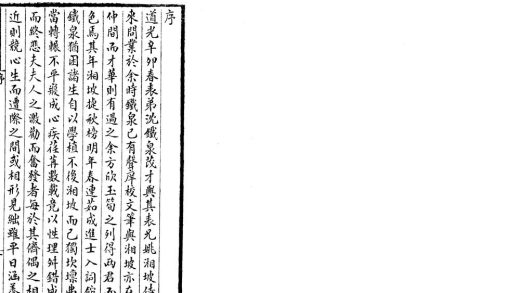 序
道光辛卯春表弟沈鐵泉茂才與其表兄姚湘坡偕
來問業於余時鐵泉已有聲庠校文筆與湘坡亦在
仲間而才華則有過之余方欣玉筍之列得兩君而
色焉其年湘坡捷秋榜明年春連茹成進士入詞館
鐵泉猶困諸生自以學植不後湘坡而己獨坎壈弗
當轉輾不平癡成心疾荏苒數載竟以性理舛錯
而終悲夫夫人之激勸而奮發者每於其儕偶之相
近則競心生而遭際之間或相形見絀雖平日涵養
序